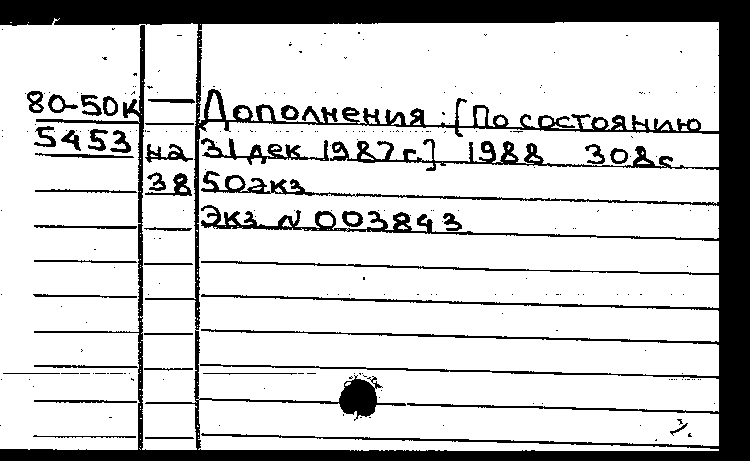 80-50к — Дополнения : [По состоянию
5453 на 31 дек 1987 г.]. 1988 308 с.
38 50 экз
Экз. N 003843